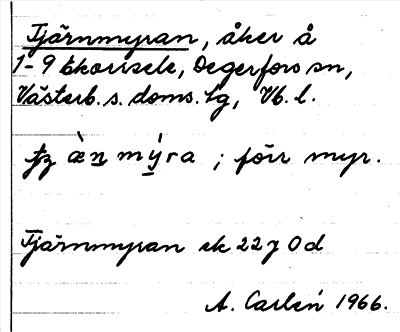 Tjärnmyran, åker å
1-9 Ekorrsele, Degerfors sn,
Västerb. s. doms. tg, Vb. l.
mýra ; förr myr.
Tjärnmyran ek 22 J 0 d
A. Carlén 1966.